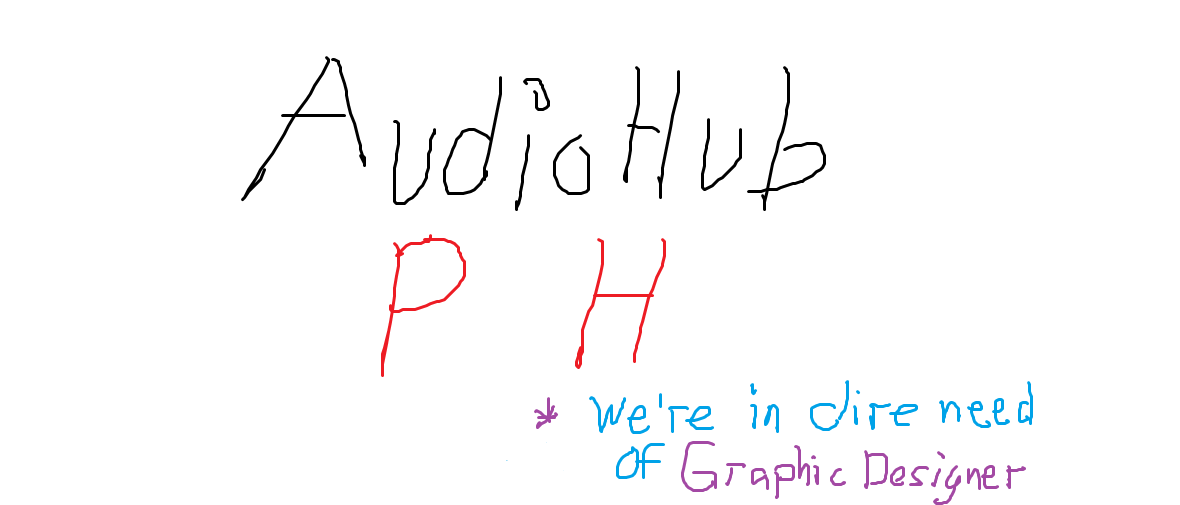 AudioHub
P H
* We're in dire need
of Graphic Designer